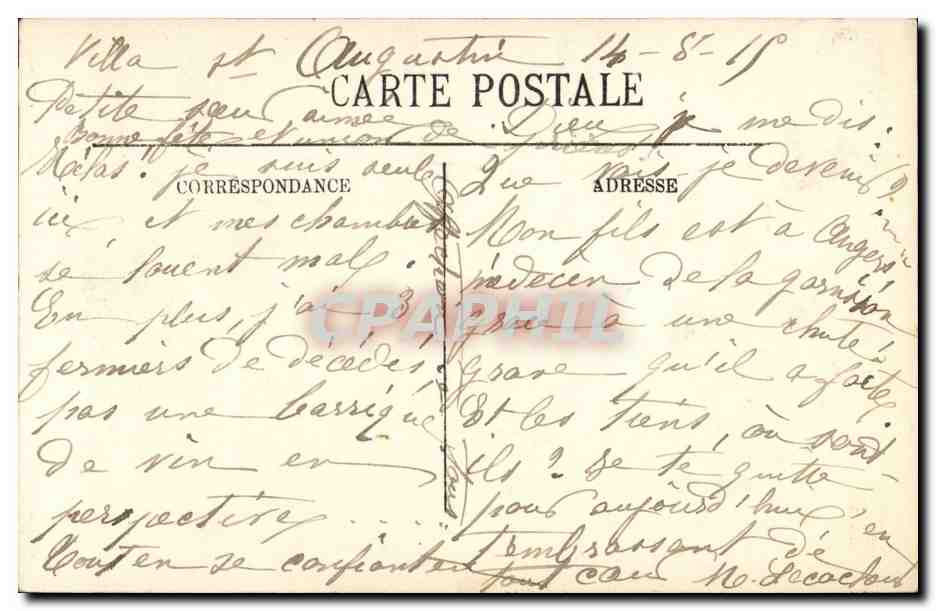 Villa St Augustin 14-8-15
CARTE POSTALE
Petite sœur aimée
Bonne fête et union de
CORRESPONDANCE
Hélas. je suis seule
ici et mes chambres
se louent mal.
En plus, j'ai 3
fermiers de décédés,
pas une barrique
de vin en
perspective.....
Tout en se confiant en
Dieu, je me dis.
ADRESSE
Que vais-je devenir?
Mon fils est à Angers
médecin de la garnison
grâce à une chute
grave qu'il a faite
Et les tiens, où sont
ils? Je te quitte
pour aujourd'hui en
t'embrassant de
tout cœur
CPAPHIL